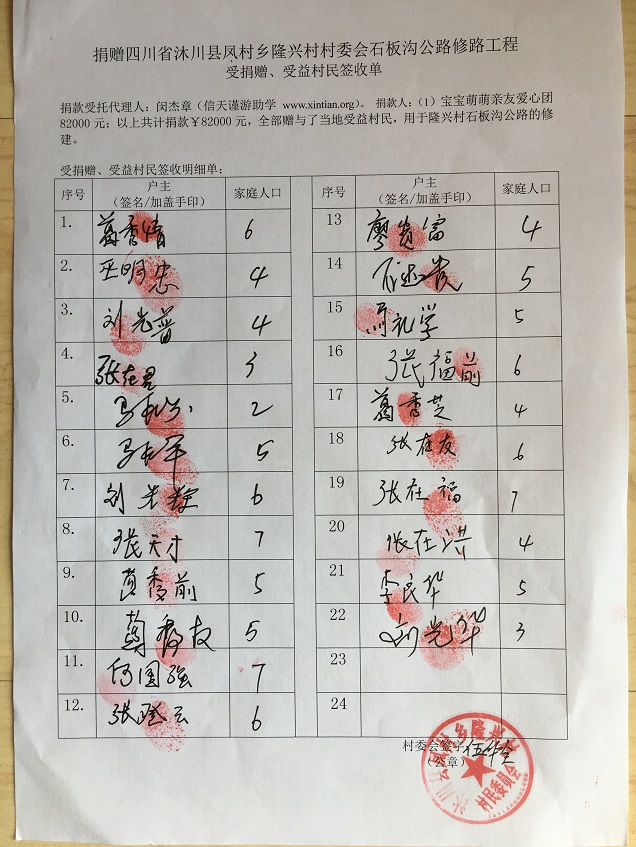 捐赠四川省沐川县凤村乡隆兴村村委会石板沟公路修路工程
受捐赠、受益村民签收单
捐款受托代理人：闵杰章（信天谨游助学 www.xintian.org）。 捐款人：（1）宝宝萌萌亲友爱心团
82000 元；以上共计捐款￥82000 元，全部赠与了当地受益村民，用于隆兴村石板沟公路的修
建。
受捐赠、受益村民签收明细单：
序号 户主 家庭人口 序号 户主 家庭人口
（签名/加盖手印） （签名/加盖手印）
1. 葛香清 6 13 廖贵富 4
2. 王明忠 4 14 5
3. 刘光普 4 15 礼学 5
4. 张在君 3 16 张福前 6
5. 2 17 葛香芝 4
6. 马在军 5 18 张在友 6
7. 刘光 6 19 张在福 7
8. 张天才 7 20 张在洪 4
9. 香前 5 21 李民华 5
10. 友 5 22 刘光华 3
11. 何国强 7 23
12. 张 云 6 24
村委会签字 伍华全
（公章）
沐川县凤村乡隆兴村
村民委员会